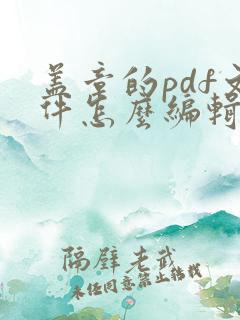 盖章的pdf文
件怎麼編輯
隔壁老武
未经同意禁止转载